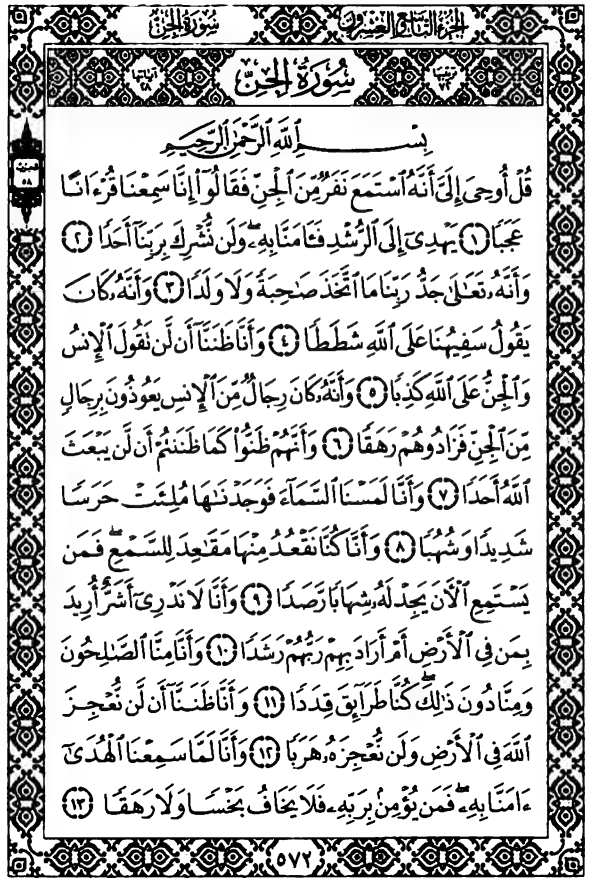 سُورَةُ الجِنِّ الجُزْءُ التَّاسِعُ وَالعِشْرُونَ
ترتيبها ٧٢ سُورَةُ الجِنِّ آياتها ٢٨
الحزب ٥٨
بِسْمِ ٱللَّهِ ٱلرَّحْمَٰنِ ٱلرَّحِيمِ
قُلْ أُوحِىَ إِلَىَّ أَنَّهُ ٱسْتَمَعَ نَفَرٌ مِّنَ ٱلْجِنِّ فَقَالُوٓا۟ إِنَّا سَمِعْنَا قُرْءَانًا
عَجَبًا ١ يَهْدِىٓ إِلَى ٱلرُّشْدِ فَـَٔامَنَّا بِهِۦ ۖ وَلَن نُّشْرِكَ بِرَبِّنَآ أَحَدًا ٢
وَأَنَّهُۥ تَعَٰلَىٰ جَدُّ رَبِّنَا مَا ٱتَّخَذَ صَٰحِبَةً وَلَا وَلَدًا ٣ وَأَنَّهُۥ كَانَ
يَقُولُ سَفِيهُنَا عَلَى ٱللَّهِ شَطَطًا ٤ وَأَنَّا ظَنَنَّآ أَن لَّن نَقُولَ ٱلْإِنسُ
وَٱلْجِنُّ عَلَى ٱللَّهِ كَذِبًا ٥ وَأَنَّهُۥ كَانَ رِجَالٌ مِّنَ ٱلْإِنسِ يَعُوذُونَ بِرِجَالٍ
مِّنَ ٱلْجِنِّ فَزَادُوهُمْ رَهَقًا ٦ وَأَنَّهُمْ ظَنُّوا۟ كَمَا ظَنَنتُمْ أَن لَّن يَبْعَثَ
ٱللَّهُ أَحَدًا ٧ وَأَنَّا لَمَسْنَا ٱلسَّمَآءَ فَوَجَدْنَٰهَا مُلِئَتْ حَرَسًا
شَدِيدًا وَشُهُبًا ٨ وَأَنَّا كُنَّا نَقْعُدُ مِنْهَا مَقَٰعِدَ لِلسَّمْعِ ۖ فَمَن
يَسْتَمِعِ ٱلْـَٔانَ يَجِدْ لَهُۥ شِهَابًا رَّصَدًا ٩ وَأَنَّا لَا نَدْرِىٓ أَشَرٌّ أُرِيدَ
بِمَن فِى ٱلْأَرْضِ أَمْ أَرَادَ بِهِمْ رَبُّهُمْ رَشَدًا ١٠ وَأَنَّا مِنَّا ٱلصَّٰلِحُونَ
وَمِنَّا دُونَ ذَٰلِكَ ۖ كُنَّا طَرَآئِقَ قِدَدًا ١١ وَأَنَّا ظَنَنَّآ أَن لَّن نُّعْجِزَ
ٱللَّهَ فِى ٱلْأَرْضِ وَلَن نُّعْجِزَهُۥ هَرَبًا ١٢ وَأَنَّا لَمَّا سَمِعْنَا ٱلْهُدَىٰٓ
ءَامَنَّا بِهِۦ ۖ فَمَن يُؤْمِنۢ بِرَبِّهِۦ فَلَا يَخَافُ بَخْسًا وَلَا رَهَقًا ١٣
٥٧٢